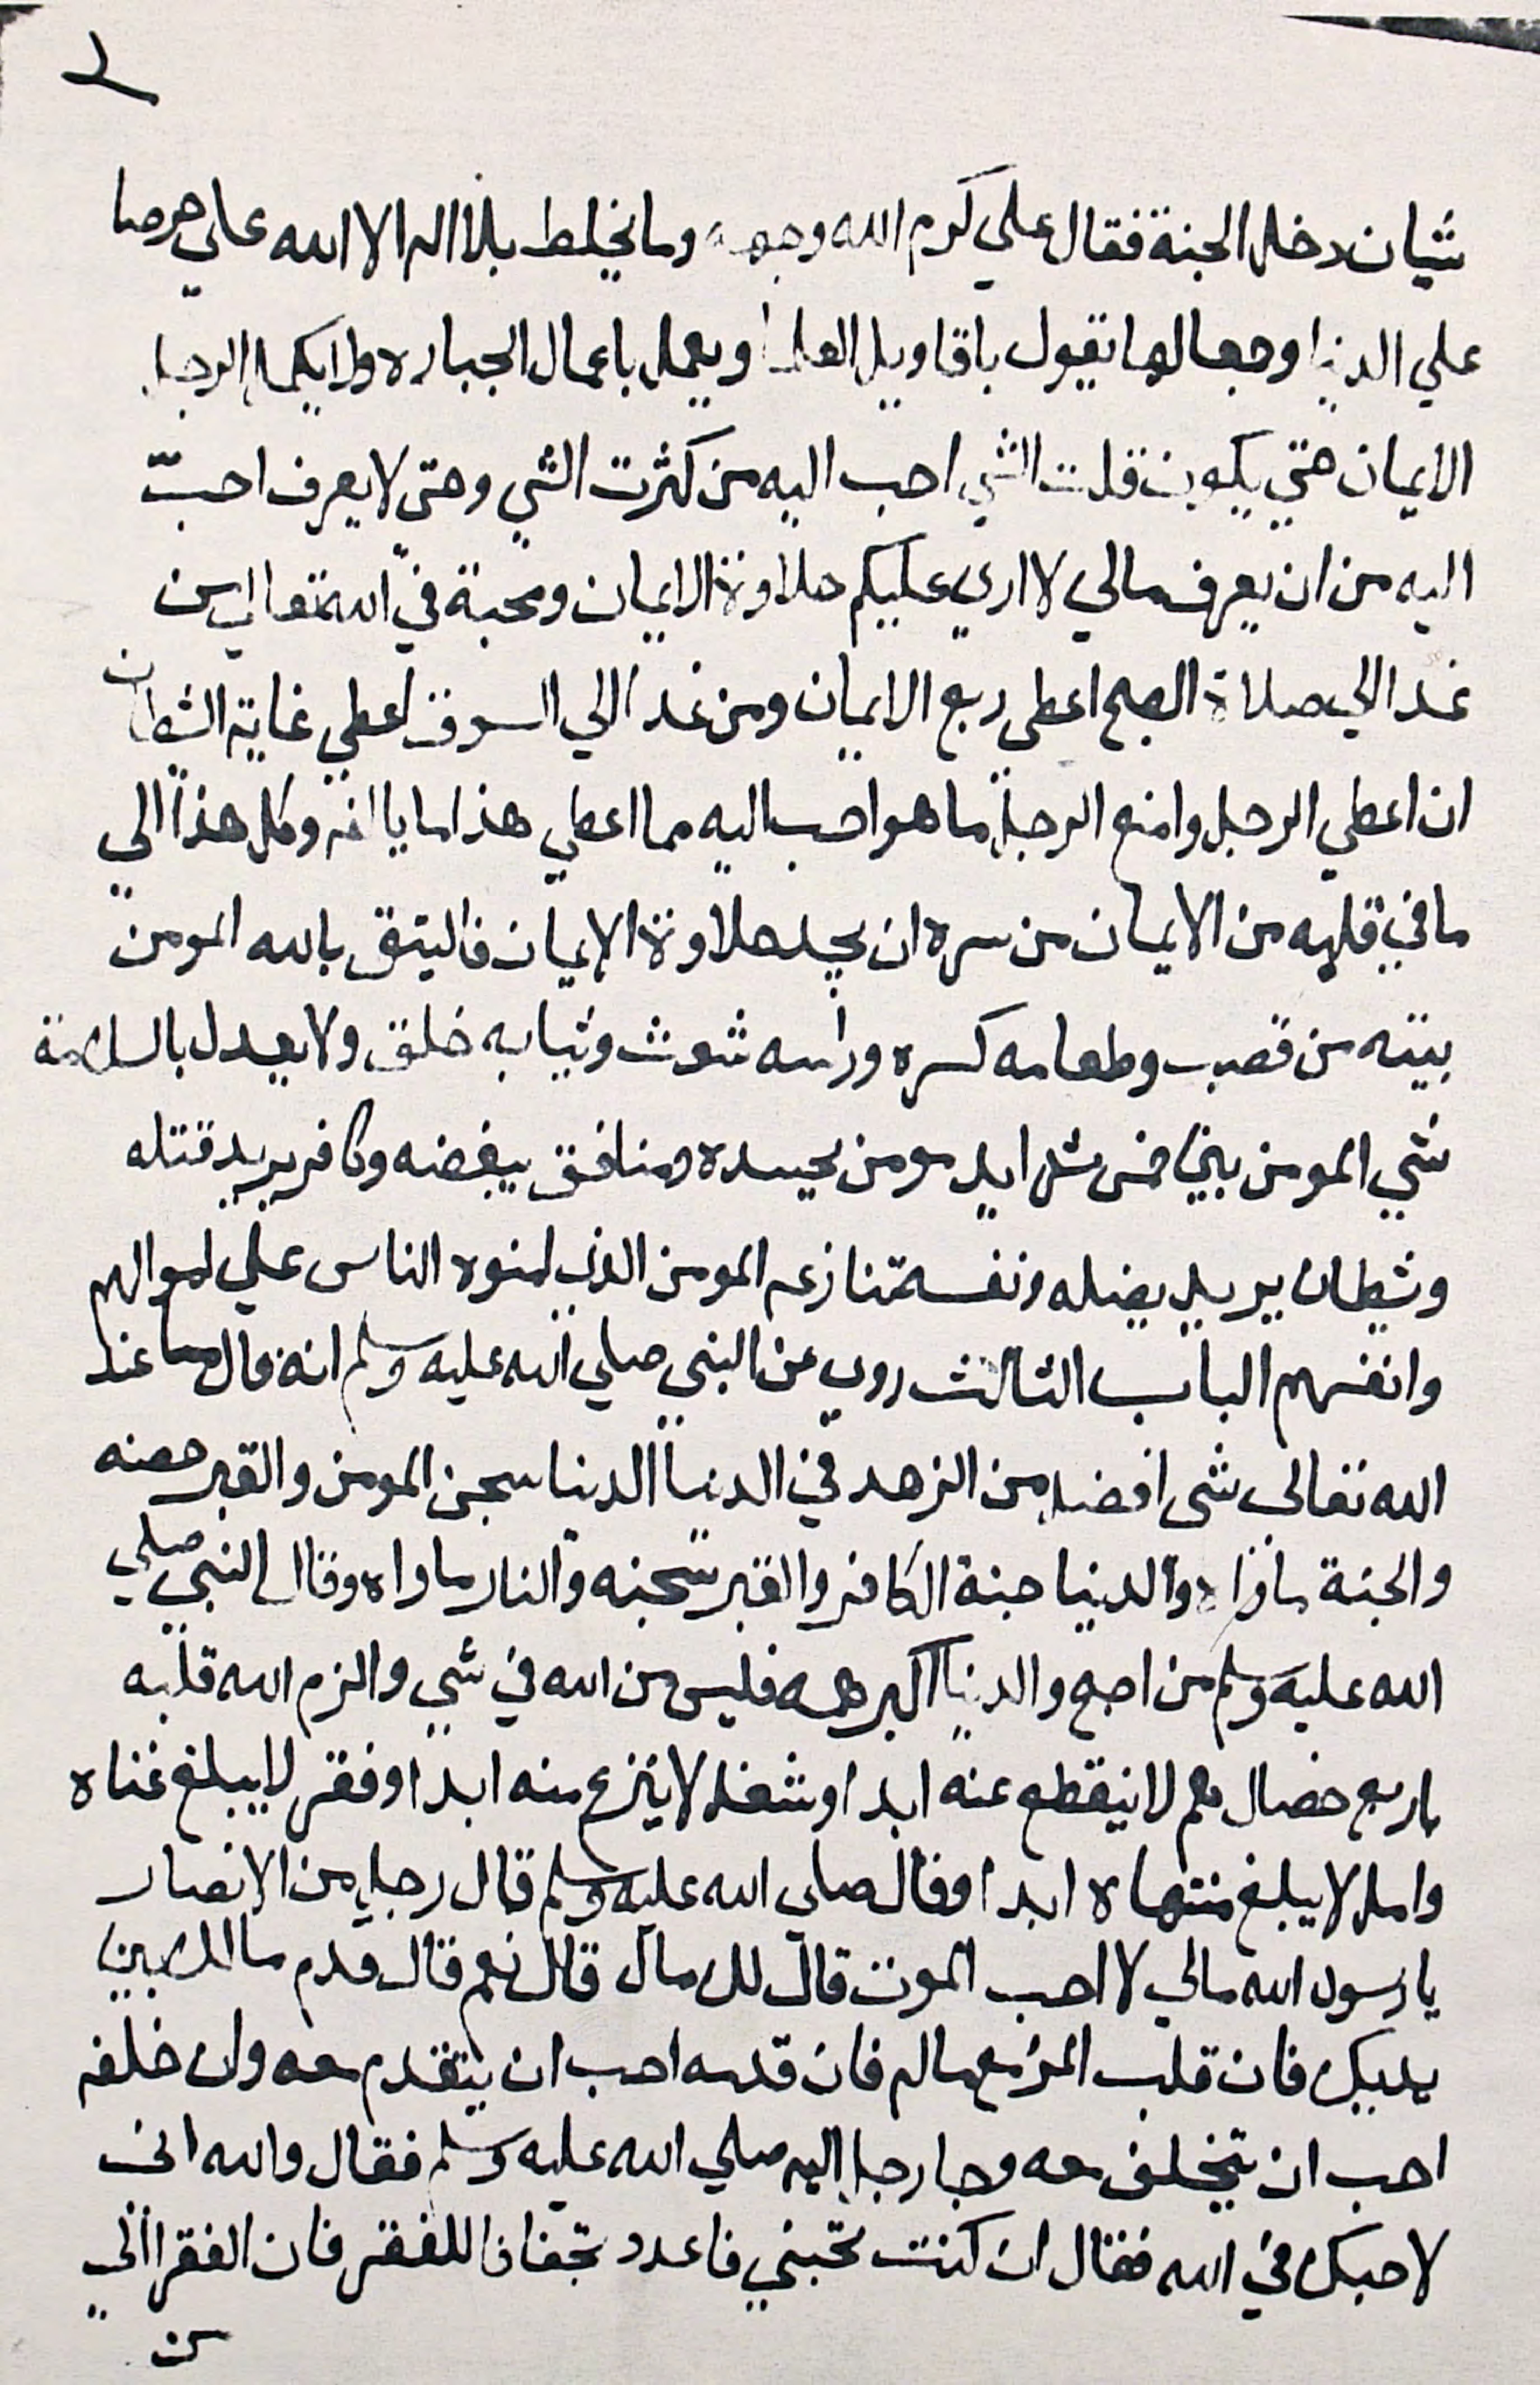 ٢
شيان دخل الجنة فقال علي كرم الله وجهه وما يخلط بلا اله الا الله علي حرصا
علي الدنيا وجمعا لها يقول باقاويل العلما ويعمل باعمال الجباره ولا يكمل الرجل
الايمان حتي يكون قلت الشي احب اليه من كثرت الشي وحتي لا يعرف احبّ
اليه من ان يعرف مالي لا اري عليكم حلاوة الايمان ومحبة في الله تعالي من
غدا الي صلاة الصبح اعطي ربع الايمان ومن غدا الي السوق اعطي غاية الشيطان
ان اعطي الرجل وامنع الرجل ما هو احب اليه مما اعطي هذا وكل هذا الي
ما في قلبه من الايمان من سره ان يجد حلاوة الايمان فاليتق بالله المومن
بيته من قصب وطعامه كسره وراسه شعث وثيابه خلق ولا يعدل بالسلامة
شي المومن بين خمس شدايد مومن يحسده ومنافق يبغضه وكافر يريد قتله
وشيطان يريد يضله ونفسه تنازعه المومن الذي امنوه الناس علي اموالهم
وانفسهم الباب الثالث روي عن النبي صلي الله عليه وسلم انه قال ما عند
الله تعالي شي افضل من الزهد في الدنيا الدنيا سجن المومن والقبر حصنه
والجنة ماواه والدنيا جنة الكافر والقبر سجنه والنار ماواه وقال النبي صلي
الله عليه وسلم من اصبح والدنيا اكبر همه فليس من الله في شي والزم الله قلبه
باربع خصال هم لا ينقطع عنه ابدا وشغل لا ينزع منه ابدا وفقر لا يبلغ غناه
وامل لا يبلغ منتهاه ابدا وقال صلي الله عليه وسلم قال رجل من الانصار
يا رسول الله مالي لا احب الموت قال لك مال قال نعم قال قدم مالك بين
يديك فان قلب المرء مع ماله فان قدمه احب ان يتقدم معه وان خلفه
احب ان يتخلف معه وجا رجل اليه صلي الله عليه وسلم فقال والله اني
لاحبك في الله فقال ان كنت تحبني فاعدد تجفافا للفقر فان الفقر الي
من